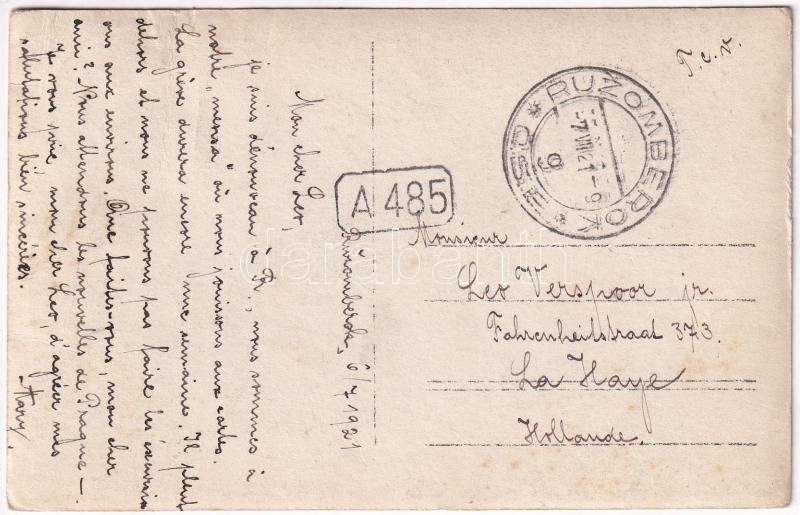 Ružomberok, 6/7 1921
Mon cher Leo,
je suis dénouveau à R., nous sommes à
notre „mensa" où nous jouissons aux cartes.
La grève durera encore une semaine. Il pleut
dehors et nous ne pouvons pas faire les excursions
aux environs. Que faites-vous, mon cher
ami? Nous attendons les nouvelles de Prague –.
Je vous prie, mon cher Leo, d'agréer mes
salutations bien sincères.
Harry
A 485
T. c. r.
RUŽOMBEROK
-7.VII.21-9
9
Monsieur
Leo Verspoor jr.
Fahrenheitstraat 373.
La Haye
Hollande.
darabanth